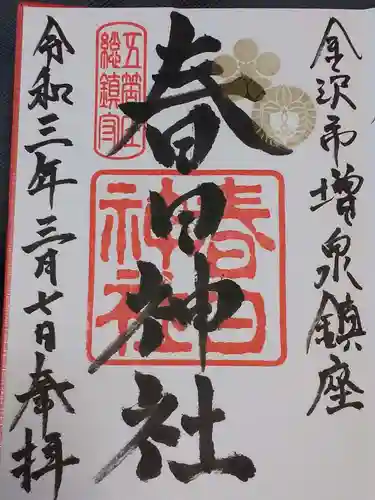 金沢市増泉鎮座
春日神社
五箇庄
総鎮守
春日
神社
令和三年三月七日奉拝